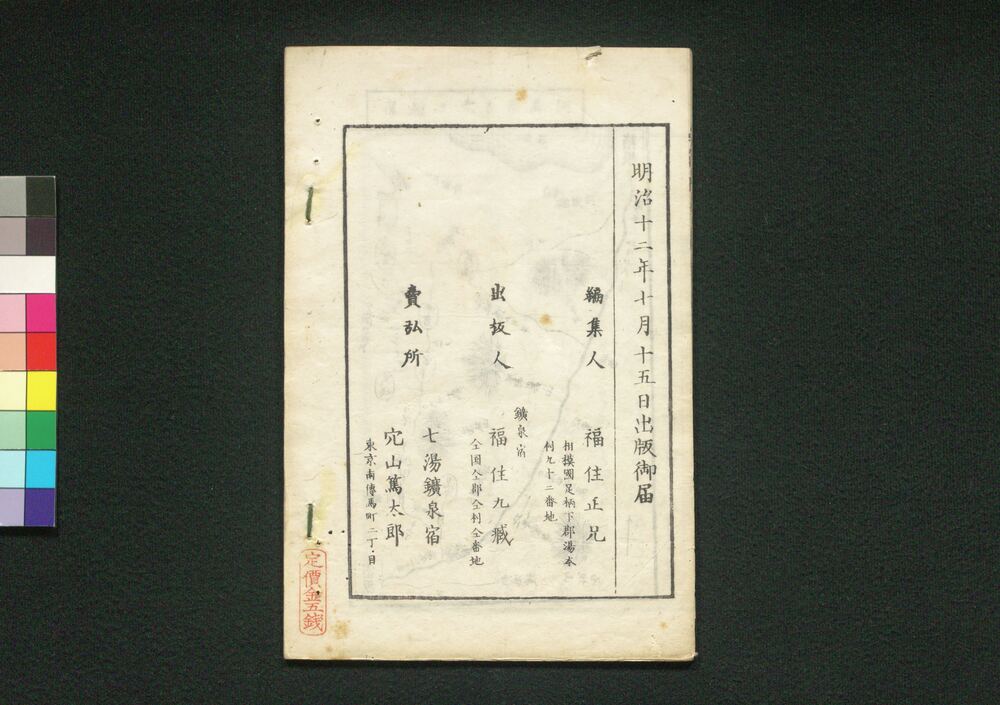 明治十二年十月十五日出版御届
編集人
福住正兄
相摸國足柄下郡湯本
村九十二番地
出板人
鑛泉宿
福住九蔵
仝国仝郡仝村仝番地
賣弘所
七湯鑛泉宿
穴山篤太郎
東京南傳馬町二丁目
定價金五銭